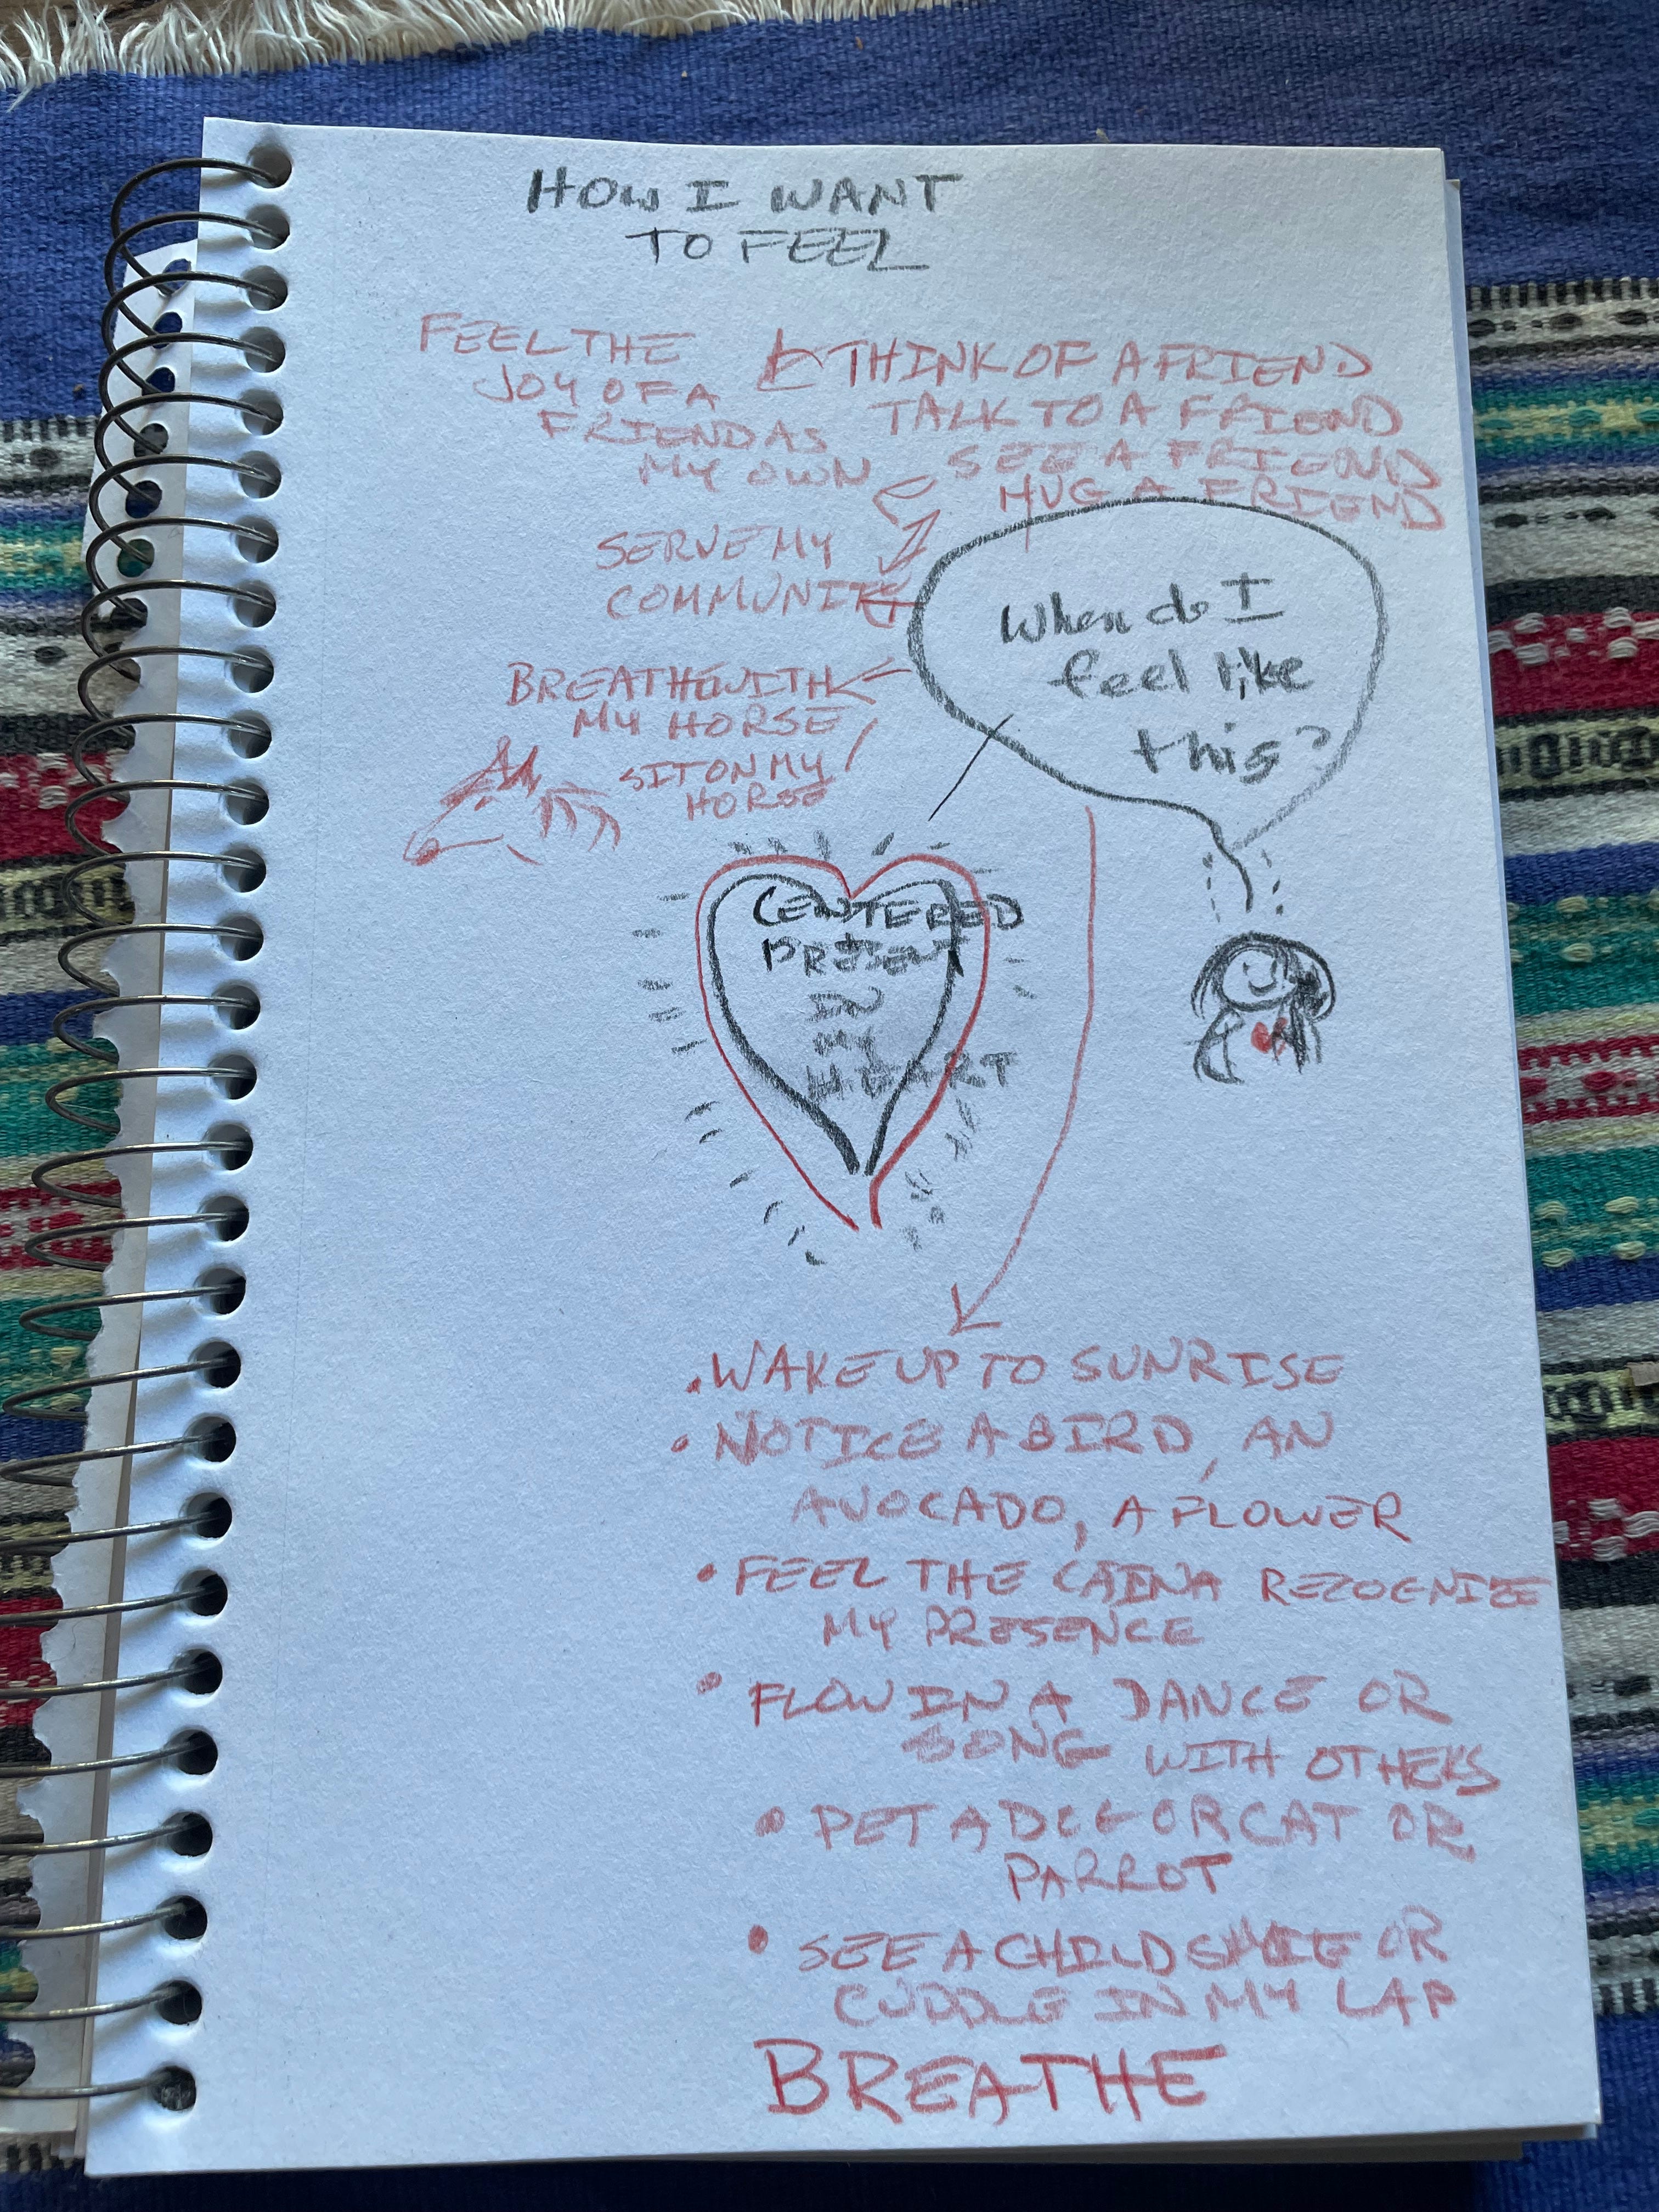 HOW I WANT
TO FEEL
FEEL THE
JOY OF A
FRIEND AS
MY OWN
THINK OF A FRIEND
TALK TO A FRIEND
SEE A FRIEND
HUG A FRIEND
SERVE MY
COMMUNITY
BREATHE WITH
MY HORSE
SIT ON MY
HORSE
When do I
feel like
this?
CENTERED
PRESENT
IN
MY
HEART
• WAKE UP TO SUNRISE
• NOTICE A BIRD, AN
AVOCADO, A FLOWER
• FEEL THE RECOGNIZE
MY PRESENCE
• FLOW IN A DANCE OR
SONG WITH OTHERS
• PET A DOG OR CAT OR
PARROT
• SEE A CHILD SMILE OR
CUDDLE IN MY LAP
BREATHE